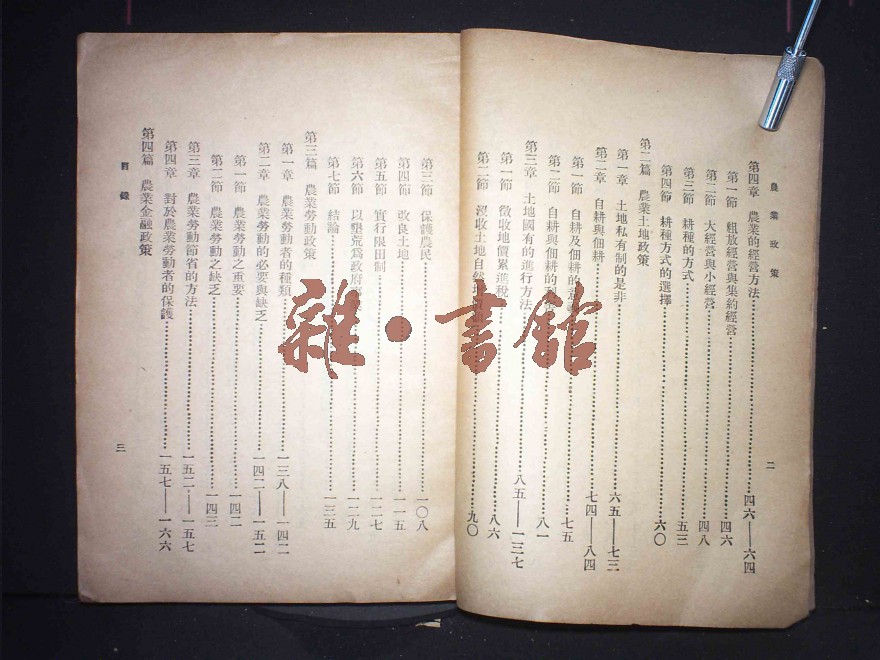 農業政策
二
第四章 農業的經營方法……四六——六四
第一節 粗放經營與集約經營……四六
第二節 大經營與小經營……四八
第三節 耕種的方式……五三
第四節 耕種方式的選擇……六〇
第二篇 農業土地政策
第一章 土地私有制的是非……六五——七三
第二章 自耕與佃耕……七四——八四
第一節 自耕及佃耕的意……七五
第二節 自耕與佃耕的……八一
第三章 土地國有的進行方法……八五——一三七
第一節 徵收地價累進稅……八六
第二節 沒收土地自然……九〇
第三節 保護農民……一〇八
第四節 改良土地……一一五
第五節 實行限田制……一二七
第六節 以墾荒爲政府……一二九
第七節 結論……一三五
第三篇 農業勞動政策
第一章 農業勞動者的種類……一三八——一四二
第二章 農業勞動的必要與缺乏……一四二——一五二
第一節 農業勞動之重要……一四二
第二節 農業勞動之缺乏……一四三
第三章 農業勞動節省的方法……一五二——一五七
第四章 對於農業勞動者的保護……一五七——一六六
第四篇 農業金融政策
目錄
三
雜·書館